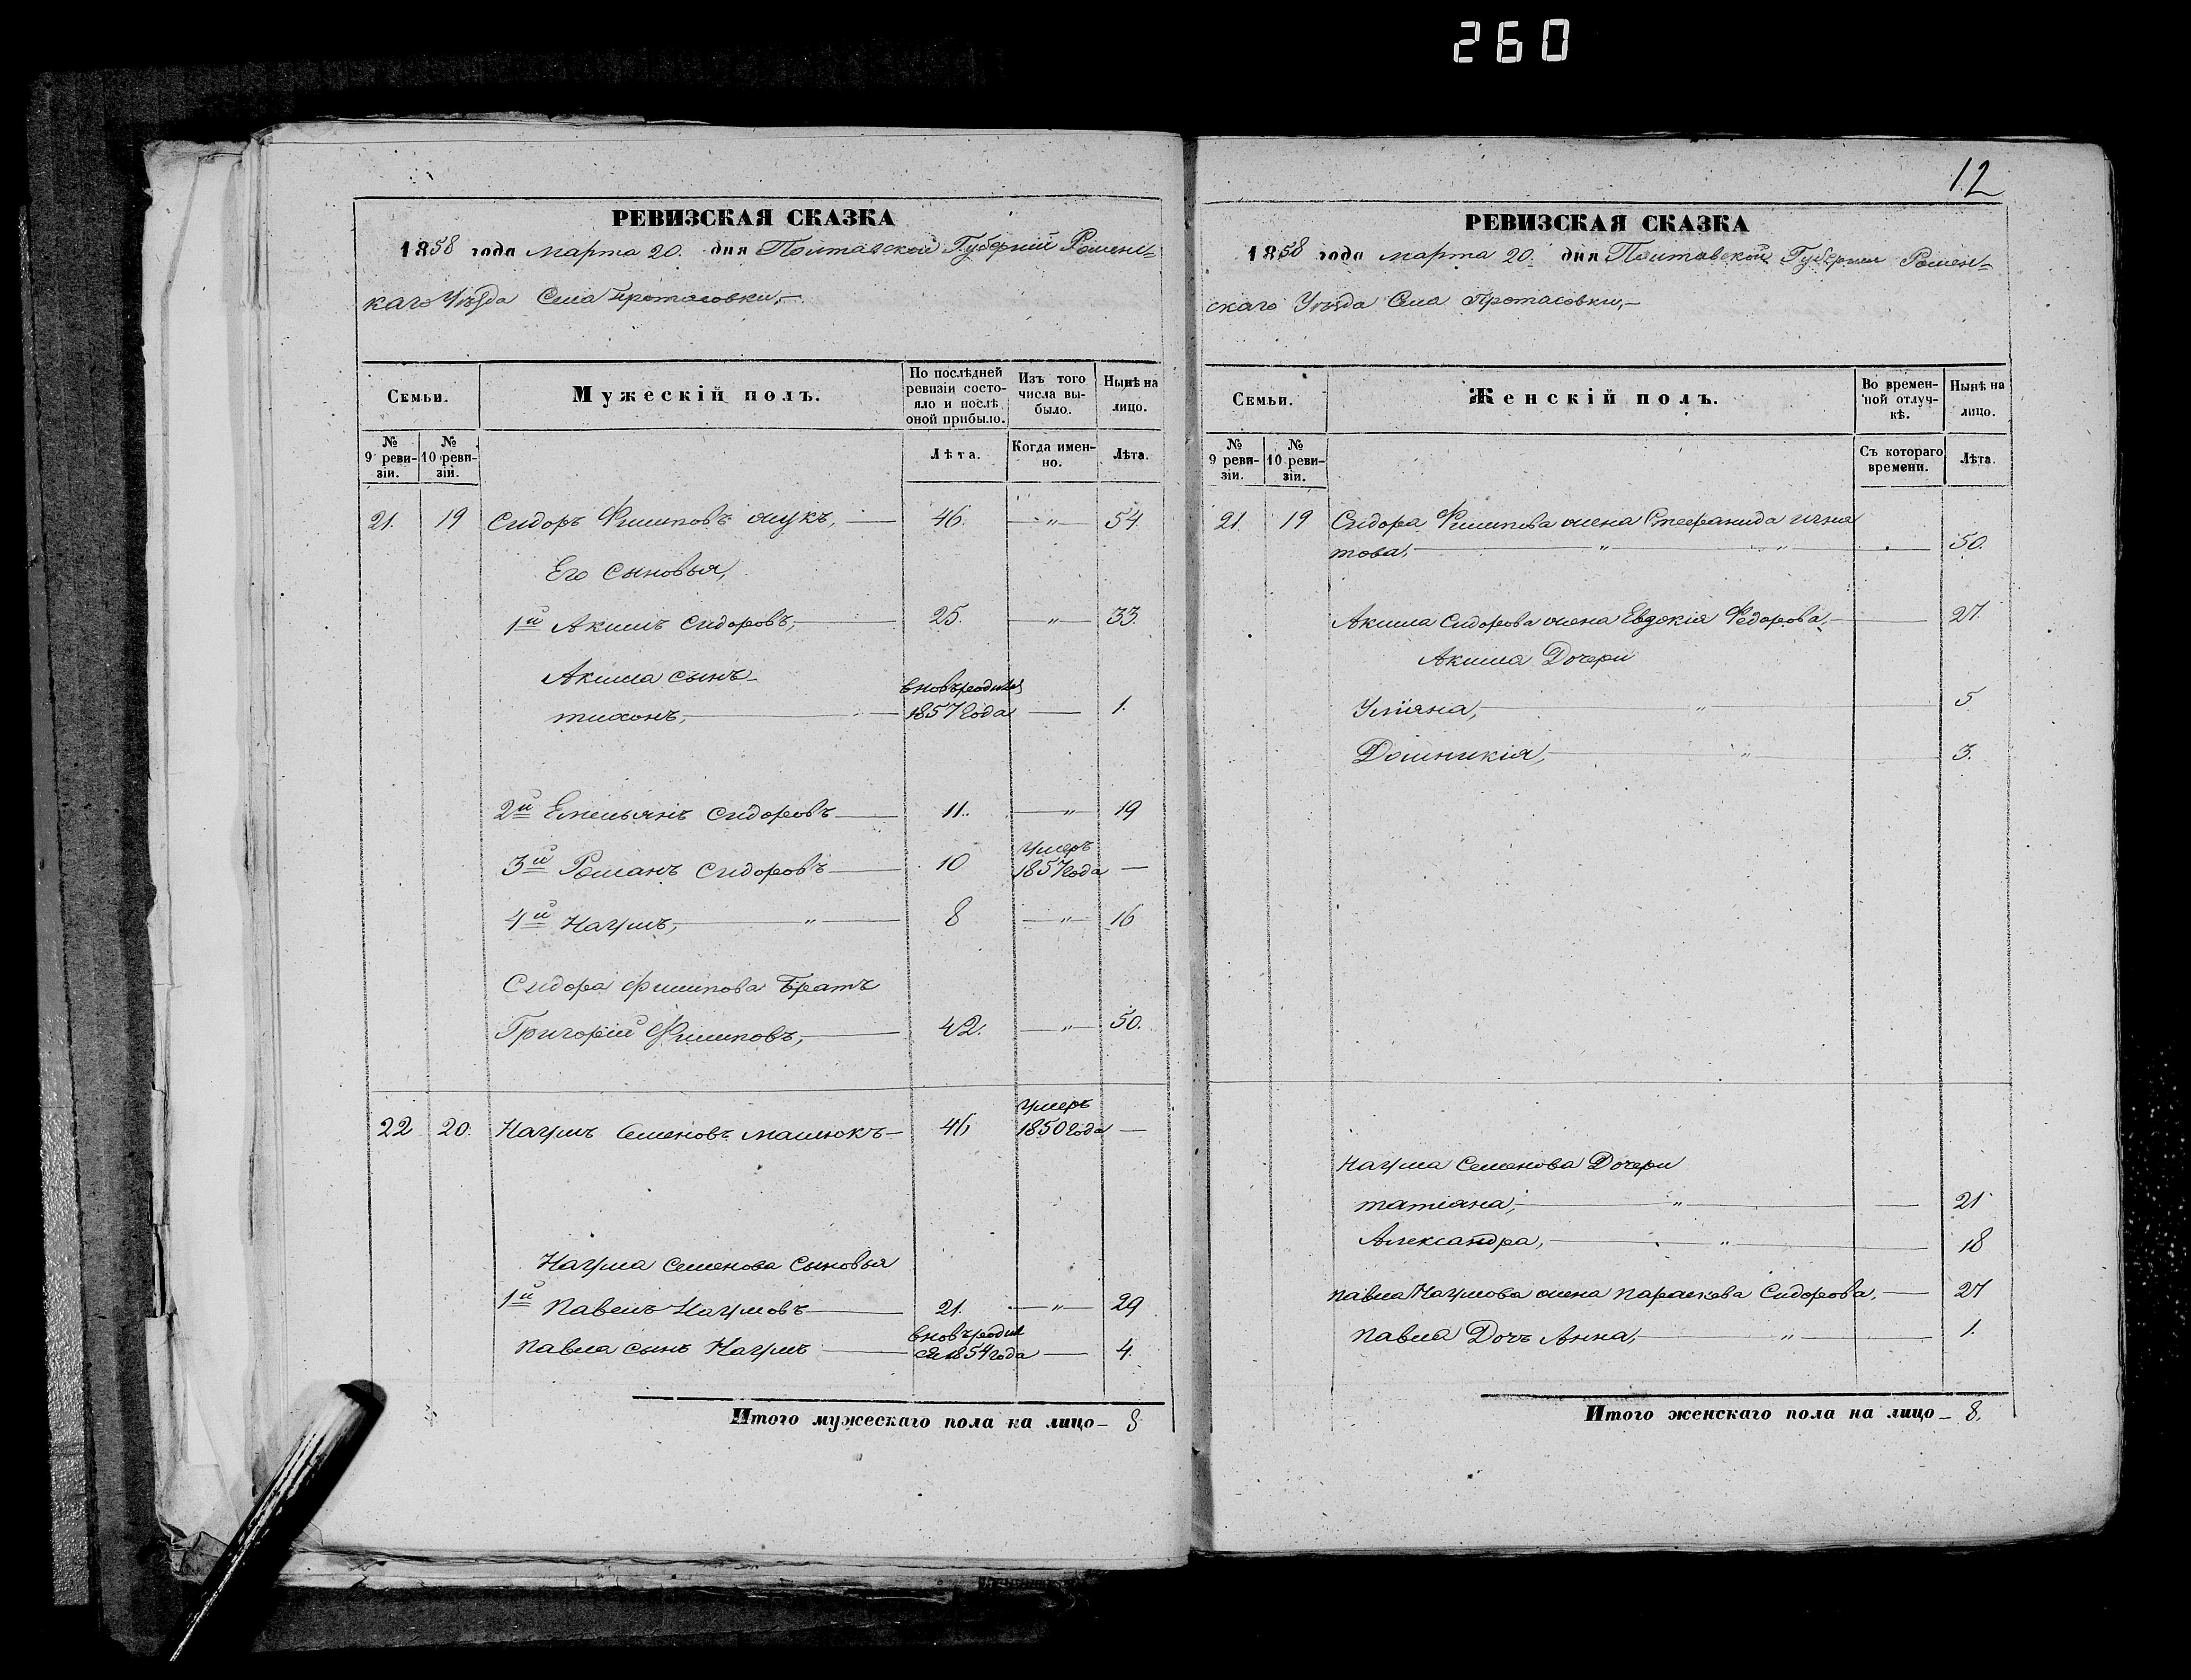 260
12
РЕВИЗСКАЯ СКАЗКА
1858 года марта 20. дня Полтавской Губерніи Ромен-
каго Уѣзда Села Протасовки,—
Семьи.
Мужескій полъ.
По послѣдней ревизіи состояло и послѣ оной прибыло.
Изъ того числа выбыло.
Нынѣ на лицо.
№ 9 ревизіи.
№ 10 ревизіи.
Лѣта.
Когда именно.
Лѣта.
21. 19 Сидоръ Филиповъ 46. " 54.
Его Сыновья,
1й Акимъ Сидоровъ, 25. " 33.
Акима сынъ
тихонъ, вновьродился 1857 года 1.
2й Емельянъ Сидоровъ 11. " 19
3й Романъ Сидоровъ 10 Умеръ 1857 года —
4й Наумъ, " 8 " 16
Сидора филипова Братъ
Григорій Филиповъ, 42. " 50.
22 20. Наумъ Семеновъ 46 Умеръ 1850 года —
Наума Семенова Сыновья
1й Павелъ Наумовъ 21. " 29
Павла сынъ Наумъ вновьродился 1854 года 4.
Итого мужескаго пола на лицо— 8.
РЕВИЗСКАЯ СКАЗКА
1858 года марта 20. дня Полтавской Губерніи Ромен-
скаго Уѣзда Села Протасовки,—
Семьи.
Женскій полъ.
Во временной отлучкѣ.
Нынѣ на лицо.
№ 9 ревизіи.
№ 10 ревизіи.
Съ котораго времени.
Лѣта.
21. 19 Сидора Филипова жена Стефанида Игна
това, " " 50.
Акима Сидорова жена Евдокія Федорова, 27.
Акима Дочери
Уліяна, " 5
Домникія, " 3.
Наума Семенова Дочери
татіана, " 21
Александра, " 18
Павла Наумова жена параскева Сидорова, 27
Павла Дочь Анна, " 1.
Итого женскаго пола на лицо— 8.